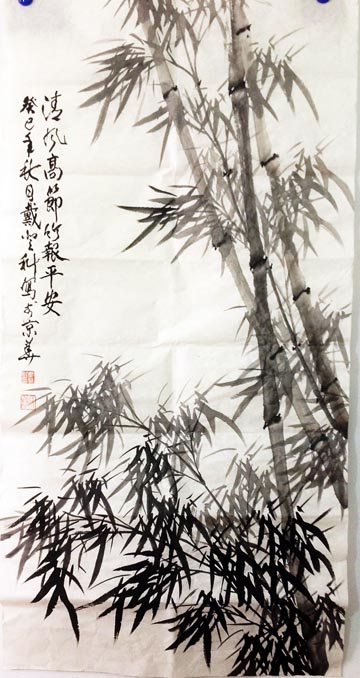 清风高節竹報平安
癸巳年秋月戴宏科寫於京華